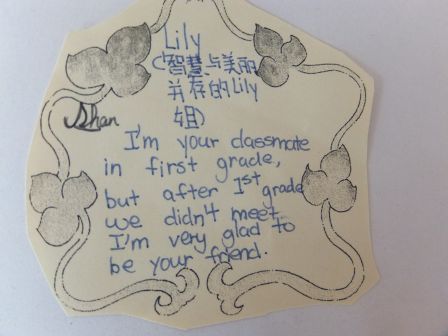 Lily
(智慧与美丽
并存的Lily
姐)
Shan
I'm your classmate
in first grade,
but after 1st grade
we didn't meet.
I'm very glad to
be your friend.